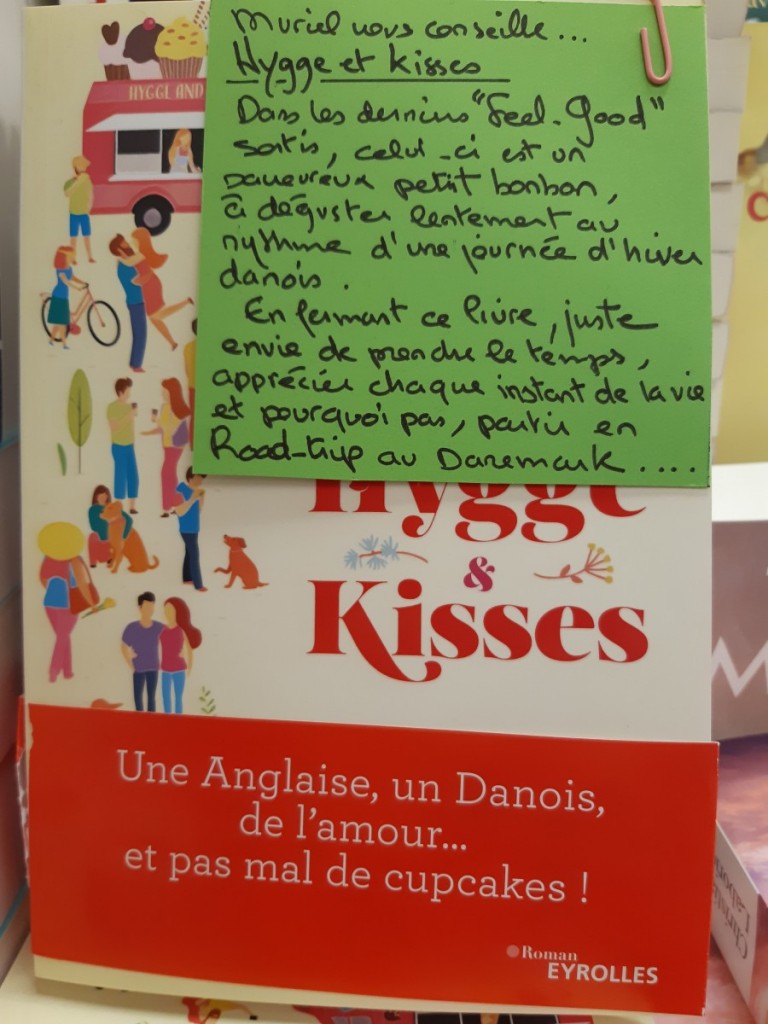 Muriel nous conseille...
Hygge et Kisses
Dans les derniers "Feel-Good"
sortis, celui-ci est un
savoureux petit bonbon,
à déguster lentement au
rythme d'une journée d'hiver
danois.
En fermant ce livre, juste
envie de prendre le temps,
apprécier chaque instant de la vie
et pourquoi pas, partir en
Road-trip au Danemark....
HYGGE AND
Hygge
&
Kisses
Une Anglaise, un Danois,
de l'amour...
et pas mal de cupcakes !
Roman
EYROLLES